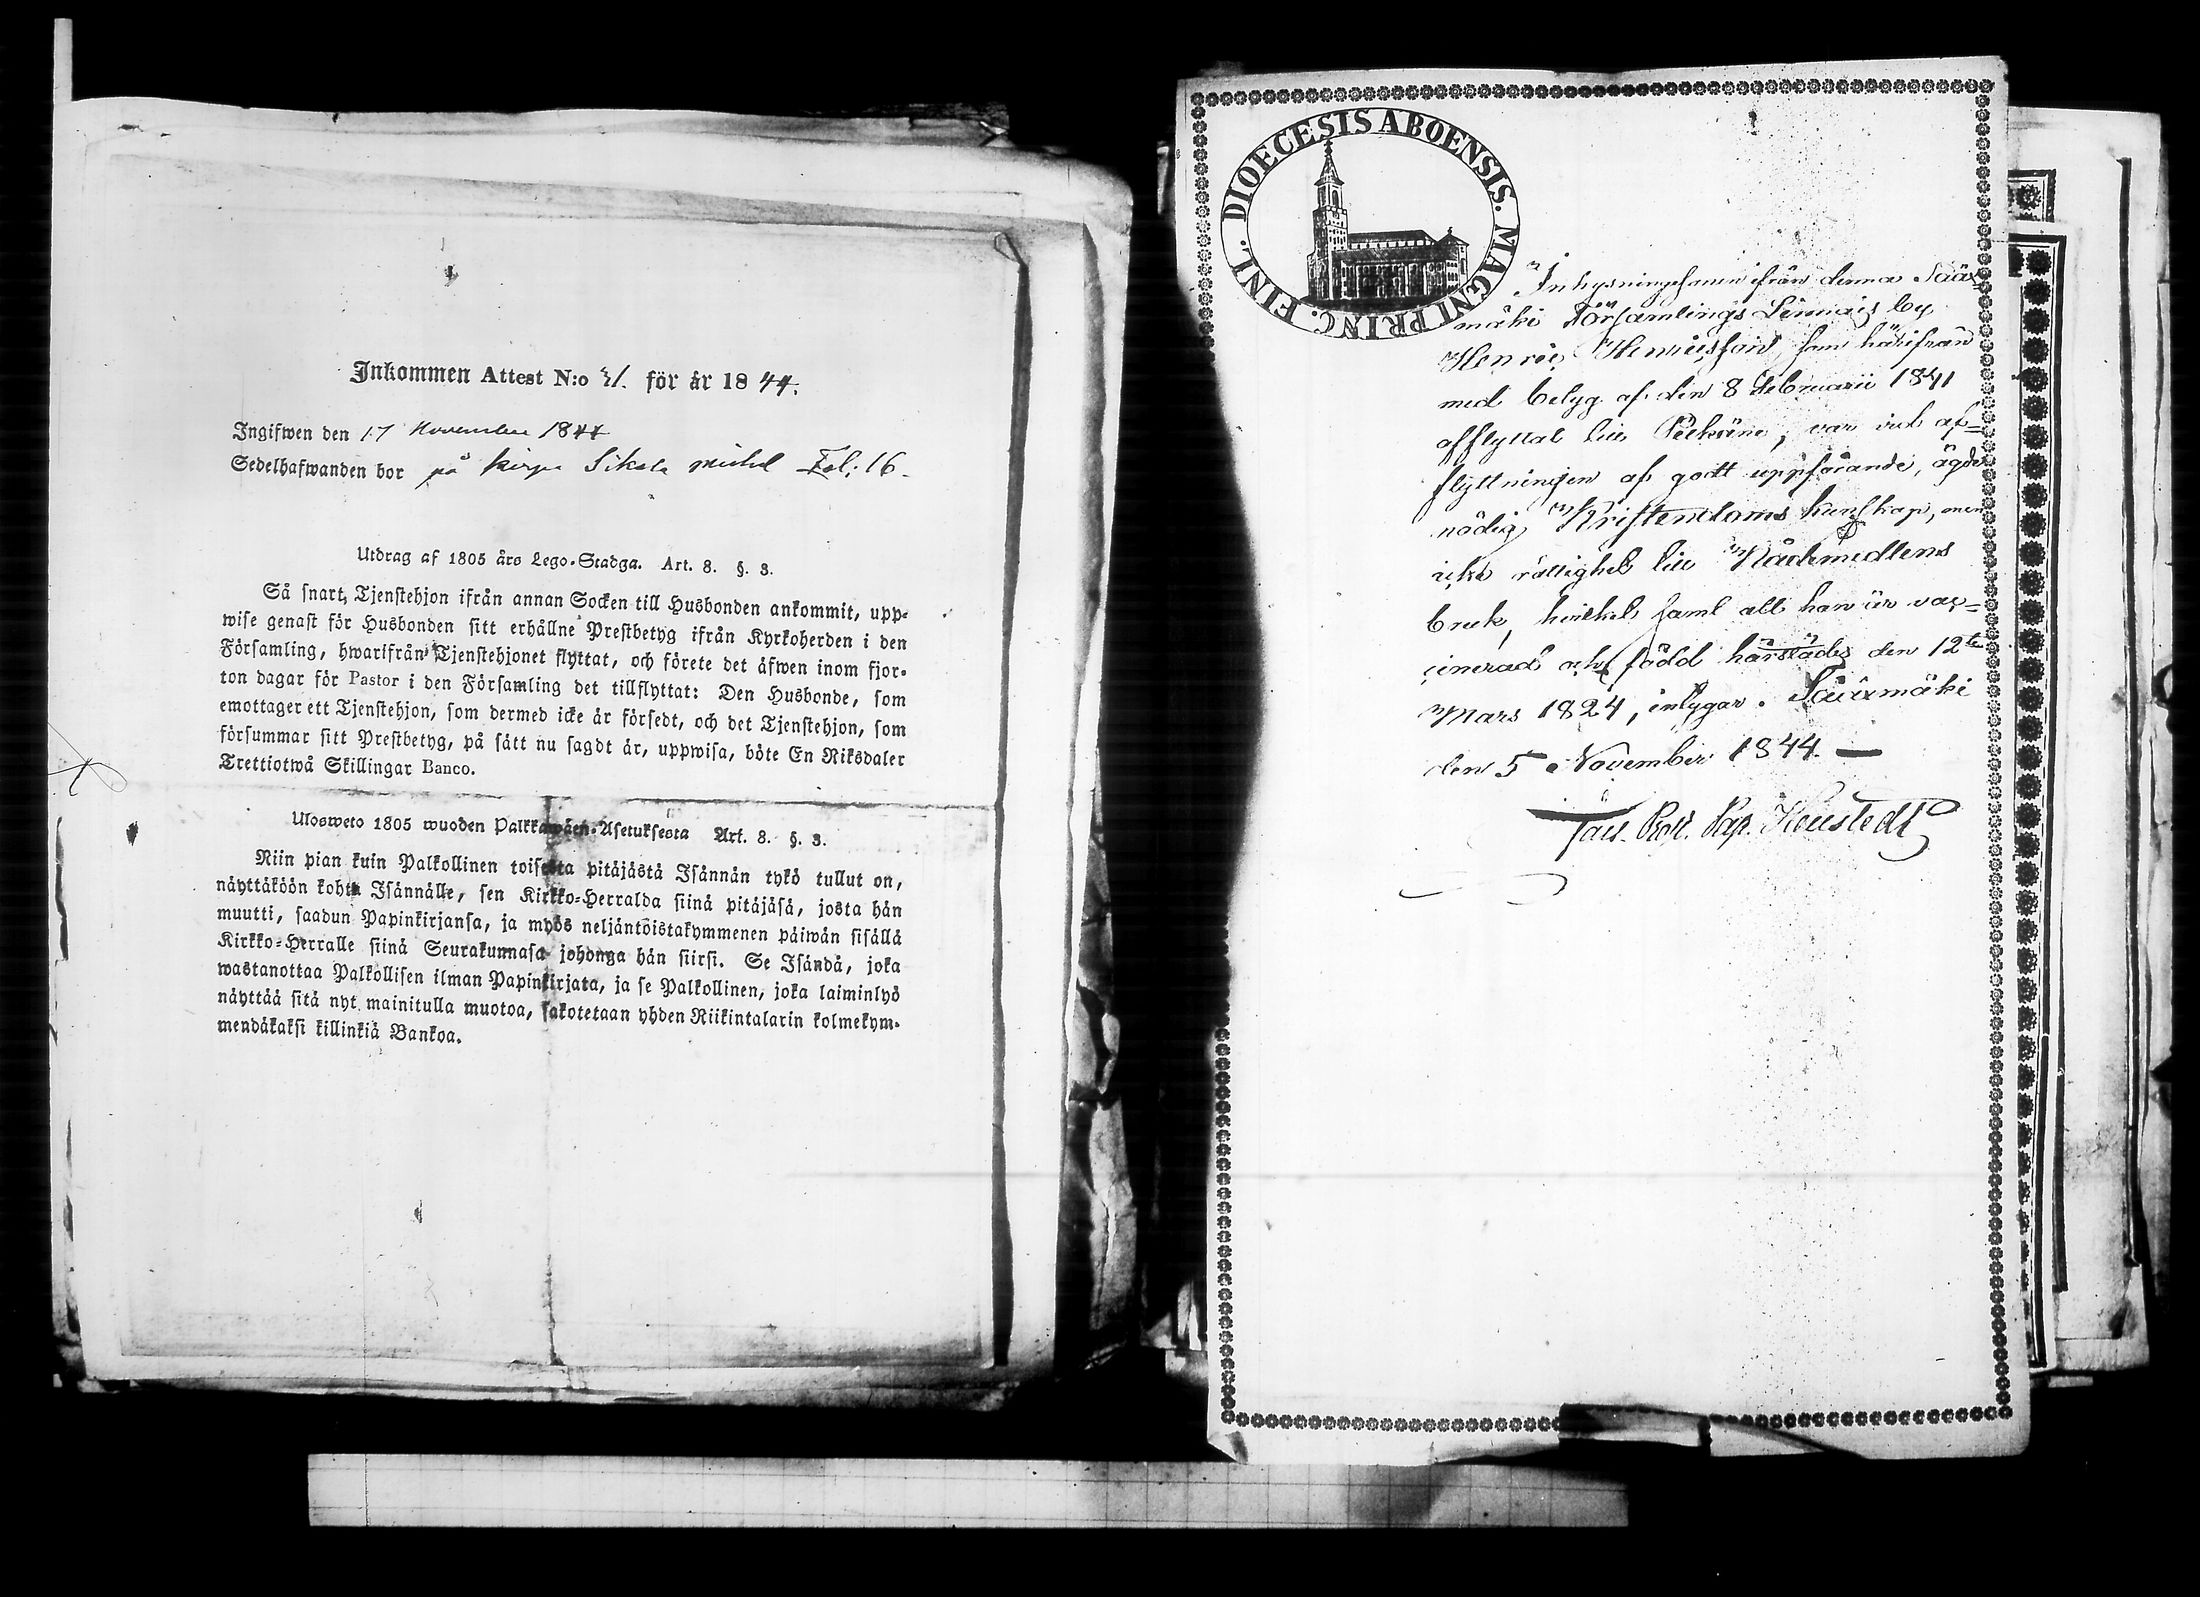 Inkommen Attest N:o 31. för år 1844.
Ingifwen den 17 November 1844
Sedelhafwanden bor på Sikola michel Fol: 16
Utdrag af 1805 års Lego-Stadga. Art. 8. §. 3.
Så snart, Tjenstehjon ifrån annan Socken till Husbonden ankommit, upp-
wise genast för Husbonden sitt erhållne Prestbetyg ifrån Kyrkoherden i den
Församling, hwarifrån Tjenstehjonet flyttat, och förete det äfwen inom fjor-
ton dagar för Pastor i den Församling det tillflyttat: Den Husbonde, som
emottager ett Tjenstehjon, som dermed icke är försedt, och det Tjenstehjon, som
försummar sitt Prestbetyg, på sätt nu sagdt är, uppwisa, böte En Riksdaler
Trettiotwå Skillingar Banco.
Ulosweto 1805 wuoden Palkkawäen-Asetuksesta Art. 8. §. 3.
Niin pian kuin Palkollinen toisesta pitäjästä Isännän tykö tullut on,
näyttäköön kohta Isännälle, sen Kirkko-Herralda siinä pitäjäsä, josta hän
muutti, saadun Papinkirjansa, ja myös neljäntöistakymmenen päiwän sisällä
Kirkko-Herralle siinä Seurakunnasa johonga hän siirsi. Se Isändä, joka
wastanottaa Palkollisen ilman Papinkirjata, ja se Palkollinen, joka laiminlyö
näyttää sitä nyt mainitulla muotoa, sakotetaan yhden Riikintalarin kolmekym-
mendäkaksi killinkiä Bankoa.
DIOECESIS ABOENSIS. MAGNI PRINC. FINL.
Inhysningesonen ifrån denna Sääx-
mäki Församlings Linnais by
Henric Henricsson, som härifrån
med betyg af den 8 Februarii 1841
afflyttat till Pelkäne, var vid af=
flyttningen af godt uppförande, ägde
nödig Kristendoms kunskap, men
icke rättighet till Nådemedlens
bruk, hvilket samt att han är vac=
cinerad och född härstädes den 12te
Mars 1824, intygar. Sääxmäki
den 5 November 1844.